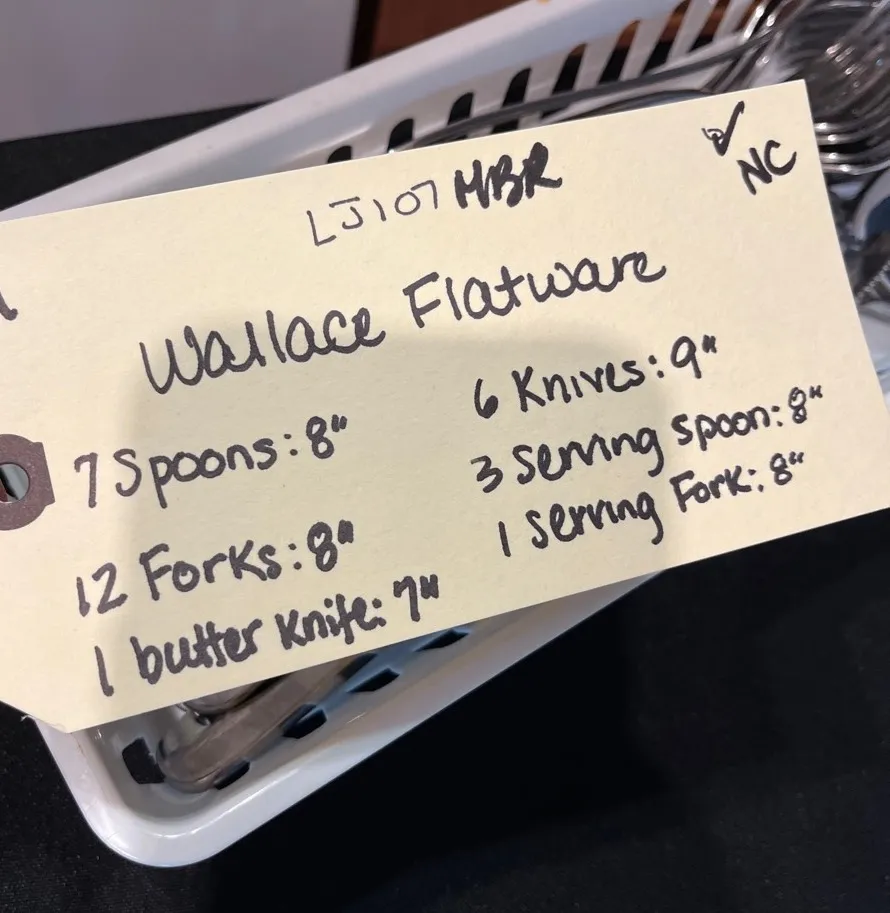 NC
LJ107 MBR
Wallace Flatware
7 Spoons: 8"
12 Forks: 8"
1 butter Knife: 7"
6 Knives: 9"
3 Serving Spoon: 8"
1 Serving Fork: 8"